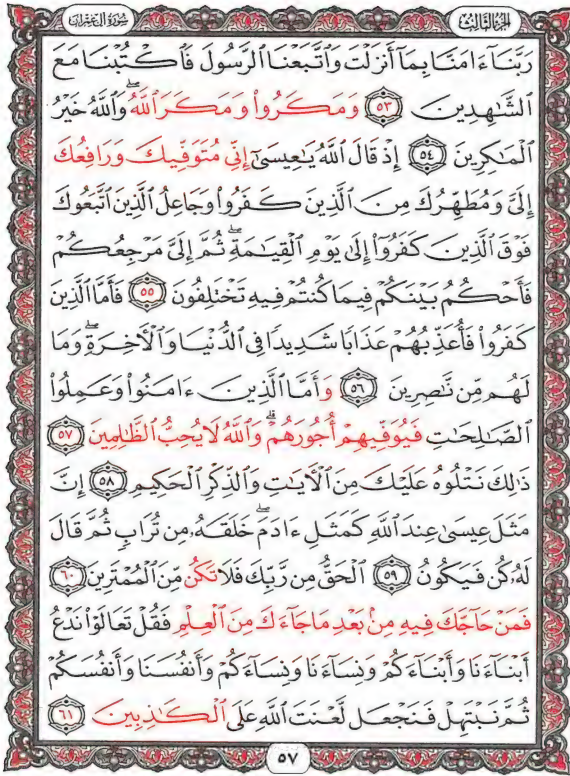 الجزء الثالث سورة آل عمران
رَبَّنَآ ءَامَنَّا بِمَآ أَنزَلْتَ وَٱتَّبَعْنَا ٱلرَّسُولَ فَٱكْتُبْنَا مَعَ
ٱلشَّٰهِدِينَ ٥٣ وَمَكَرُوا۟ وَمَكَرَ ٱللَّهُ ۖ وَٱللَّهُ خَيْرُ
ٱلْمَٰكِرِينَ ٥٤ إِذْ قَالَ ٱللَّهُ يَٰعِيسَىٰٓ إِنِّى مُتَوَفِّيكَ وَرَافِعُكَ
إِلَىَّ وَمُطَهِّرُكَ مِنَ ٱلَّذِينَ كَفَرُوا۟ وَجَاعِلُ ٱلَّذِينَ ٱتَّبَعُوكَ
فَوْقَ ٱلَّذِينَ كَفَرُوٓا۟ إِلَىٰ يَوْمِ ٱلْقِيَٰمَةِ ۖ ثُمَّ إِلَىَّ مَرْجِعُكُمْ
فَأَحْكُمُ بَيْنَكُمْ فِيمَا كُنتُمْ فِيهِ تَخْتَلِفُونَ ٥٥ فَأَمَّا ٱلَّذِينَ
كَفَرُوا۟ فَأُعَذِّبُهُمْ عَذَابًا شَدِيدًا فِى ٱلدُّنْيَا وَٱلْءَاخِرَةِ ۖ وَمَا
لَهُم مِّن نَّٰصِرِينَ ٥٦ وَأَمَّا ٱلَّذِينَ ءَامَنُوا۟ وَعَمِلُوا۟
ٱلصَّٰلِحَٰتِ فَيُوَفِّيهِمْ أُجُورَهُمْ ۗ وَٱللَّهُ لَا يُحِبُّ ٱلظَّٰلِمِينَ ٥٧
ذَٰلِكَ نَتْلُوهُ عَلَيْكَ مِنَ ٱلْءَايَٰتِ وَٱلذِّكْرِ ٱلْحَكِيمِ ٥٨ إِنَّ
مَثَلَ عِيسَىٰ عِندَ ٱللَّهِ كَمَثَلِ ءَادَمَ ۖ خَلَقَهُۥ مِن تُرَابٍ ثُمَّ قَالَ
لَهُۥ كُن فَيَكُونُ ٥٩ ٱلْحَقُّ مِن رَّبِّكَ فَلَا تَكُن مِّنَ ٱلْمُمْتَرِينَ ٦٠
فَمَنْ حَآجَّكَ فِيهِ مِنۢ بَعْدِ مَا جَآءَكَ مِنَ ٱلْعِلْمِ فَقُلْ تَعَالَوْا۟ نَدْعُ
أَبْنَآءَنَا وَأَبْنَآءَكُمْ وَنِسَآءَنَا وَنِسَآءَكُمْ وَأَنفُسَنَا وَأَنفُسَكُمْ
ثُمَّ نَبْتَهِلْ فَنَجْعَل لَّعْنَتَ ٱللَّهِ عَلَى ٱلْكَٰذِبِينَ ٦١
٥٧